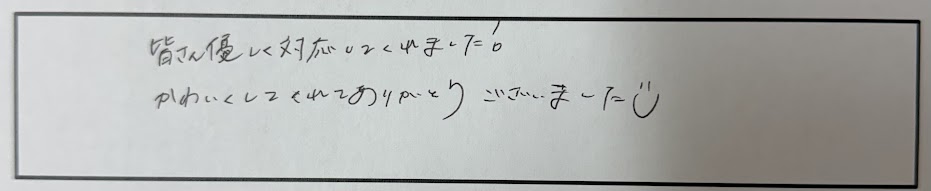 皆さん優しく対応してくれました!
かわいくしてくれてありがとうございました